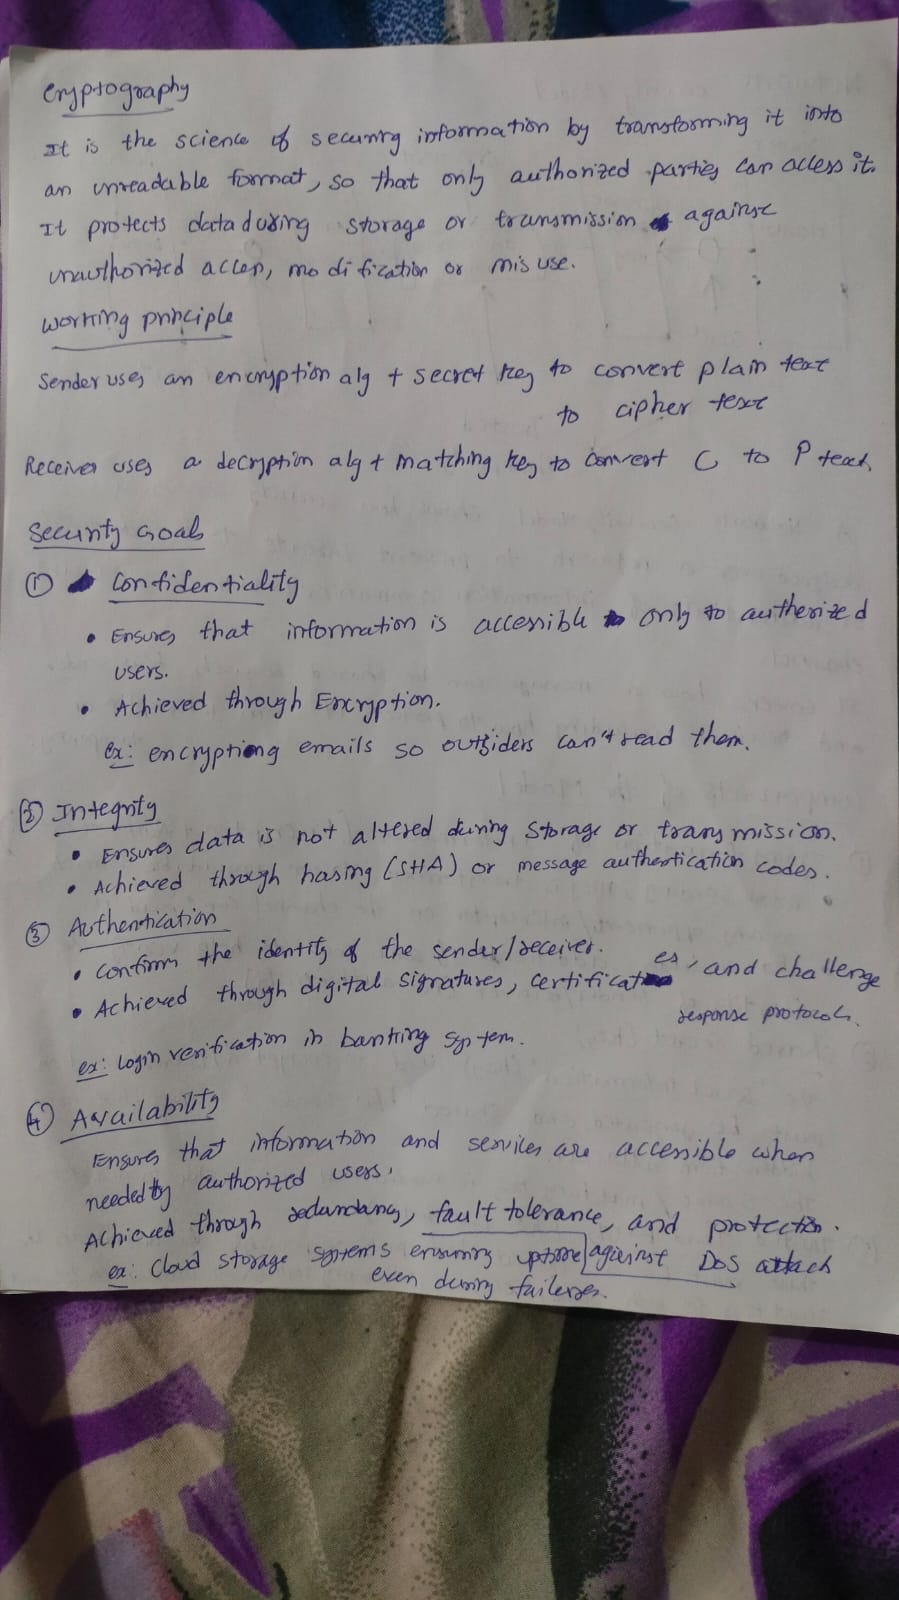 Cryptography
It is the science of securing information by transforming it into
an unreadable format, so that only authorized parties can access it.
It protects data during storage or transmission against
unauthorized access, modification or misuse.
Working principle
Sender uses an encryption alg + secret key to convert plain text
to cipher text
Receiver uses a decryption alg + matching key to convert C to P text
Security Goals
① Confidentiality
• Ensures that information is accessible only to autherized
users.
• Achieved through Encryption.
ex: encryptiong emails so outsiders can't read them.
② Integrity
• Ensures data is not altered during storage or transmission.
• Achieved through hasing (SHA) or message authentication codes.
③ Authentication
• Confirm the identity of the sender/receiver.
• Achieved through digital signatures, certificates, and challenge
response protocols.
ex: Login verification in banking system.
④ Availability
Ensures that information and services are accessible when
needed by authorized users.
Achieved through redundancy, fault tolerance, and protection.
against DoS attack
ex: Cloud storage systems ensuring uptime
even during failures.